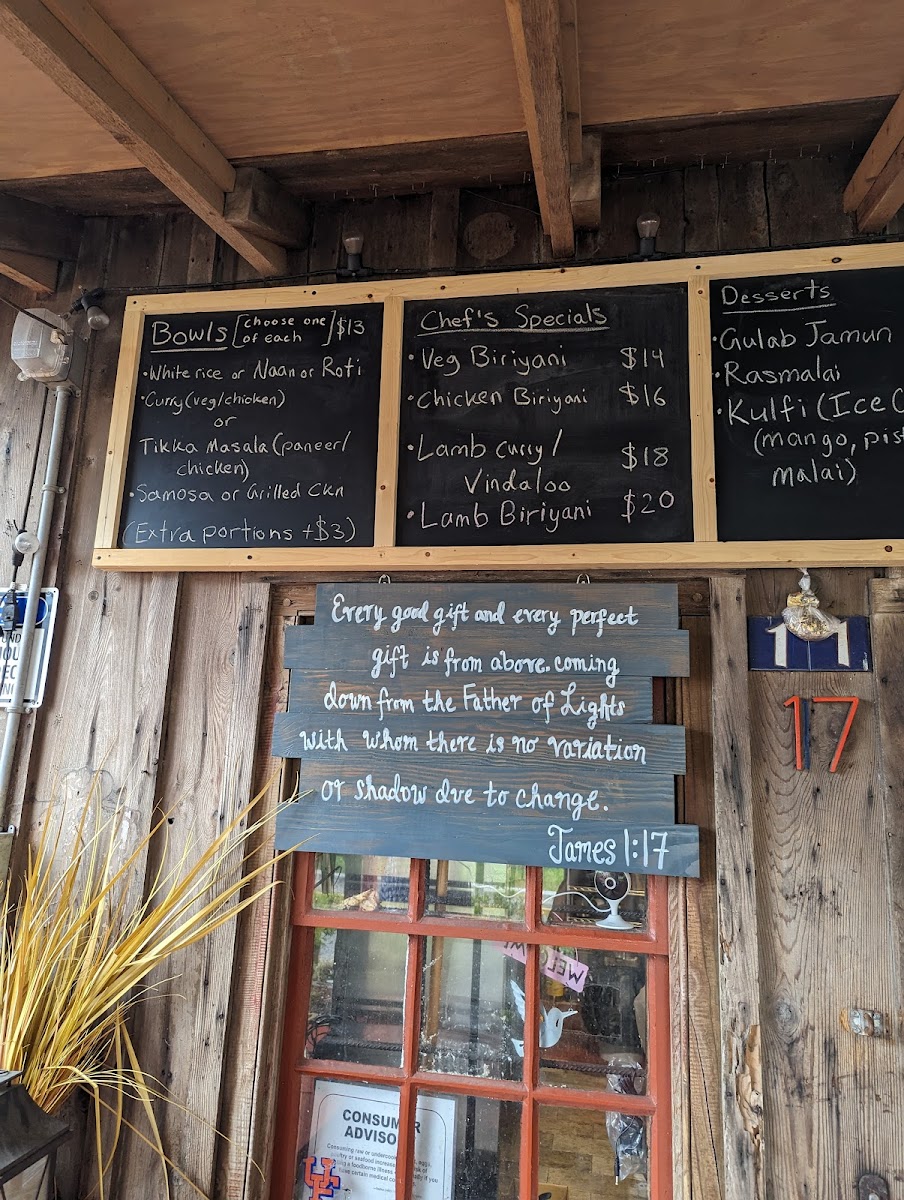 Bowls [choose one of each] $13
• White rice or Naan or Roti
• Curry (veg/chicken)
or
Tikka Masala (paneer/
chicken)
• Samosa or Grilled Ckn
(Extra portions +$3)
Chef's Specials
• Veg Biriyani $14
• Chicken Biriyani $16
• Lamb curry/
Vindaloo $18
• Lamb Biriyani $20
Desserts
• Gulab Jamun
• Rasmalai
• Kulfi (Ice
(mango,
Malai)
Every good gift and every perfect
gift is from above. coming
down from the Father of Lights
with whom there is no variation
or shadow due to change.
James 1:17
17
WEL
CONSUMER
ADVISO
Consuming raw or undercooked
eggs,
poultry or seafood increase
of
foodborne illness
if you
have certain medical